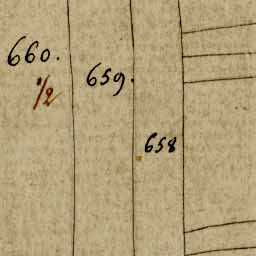 660.
1/2
659.
658